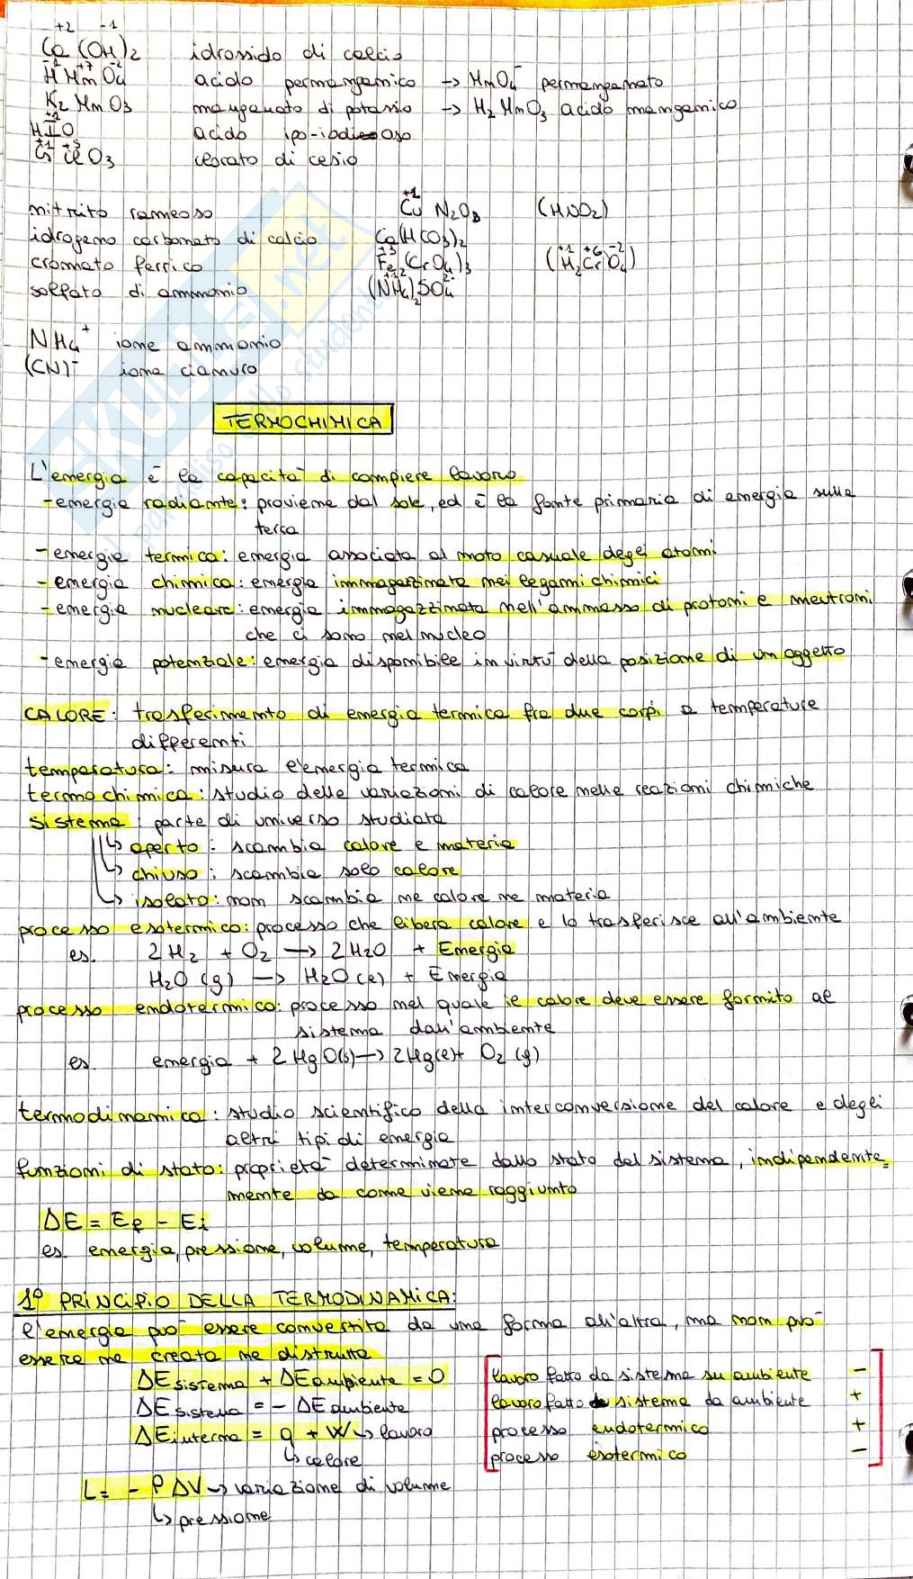 +2 -1
Ca (OH)2 idrossido di calcio
H Mn O4 acido permanganico → MnO4⁻ permanganato
K2 MnO3 manganato di potassio → H2 MnO3 acido manganico
HIO acido ipo-iodioso
Cs Cl O3 clorato di cesio
nitrito rameoso Cu N2O3 (HNO2)
idrogeno carbonato di calcio Ca(HCO3)2
cromato ferrico Fe2(CrO4)3 (H2CrO4)
solfato di ammonio (NH4)2SO4
NH4⁺ ione ammonio
(CN)⁻ ione cianuro
TERMOCHIMICA
L'energia è la capacità di compiere lavoro
-energia radiante: proviene dal sole, ed è la fonte primaria di energia sulla
terra
-energia termica: energia associata al moto casuale degli atomi
-energia chimica: energia immagazzinata nei legami chimici
-energia nucleare: energia immagazzinata nell'ammasso di protoni e neutroni
che ci sono nel nucleo
-energia potenziale: energia disponibile in virtù della posizione di un oggetto
CALORE: trasferimento di energia termica fra due corpi a temperature
differenti
temperatura: misura l'energia termica
termochimica: studio delle variazioni di calore nelle reazioni chimiche
sistema: parte di universo studiata
↳ aperto: scambia calore e materia
↳ chiuso: scambia solo calore
↳ isolato: non scambia ne calore ne materia
processo esotermico: processo che libera calore e lo trasferisce all'ambiente
es. 2H2 + O2 → 2H2O + Energia
H2O (g) → H2O (l) + Energia
processo endotermico: processo nel quale il calore deve essere fornito al
sistema dall'ambiente
es. energia + 2HgO(s) → 2Hg(l) + O2 (g)
termodinamica: studio scientifico della interconversione del calore e degli
altri tipi di energia
funzioni di stato: proprietà determinate dallo stato del sistema, indipendente=
mente da come viene raggiunto
ΔE = Ef - Ei
es. energia, pressione, volume, temperatura
1° PRINCIPIO DELLA TERMODINAMICA:
l'energia può essere convertita da una forma all'altra, ma non può
essere ne creata ne distrutta
ΔEsistema + ΔEambiente = 0 lavoro fatto da sistema su ambiente -
ΔEsistema = - ΔEambiente lavoro fatto su sistema da ambiente +
ΔEinterna = q + W ↳ lavoro processo endotermico +
↳ calore processo esotermico -
L = - P ΔV → variazione di volume
↳ pressione